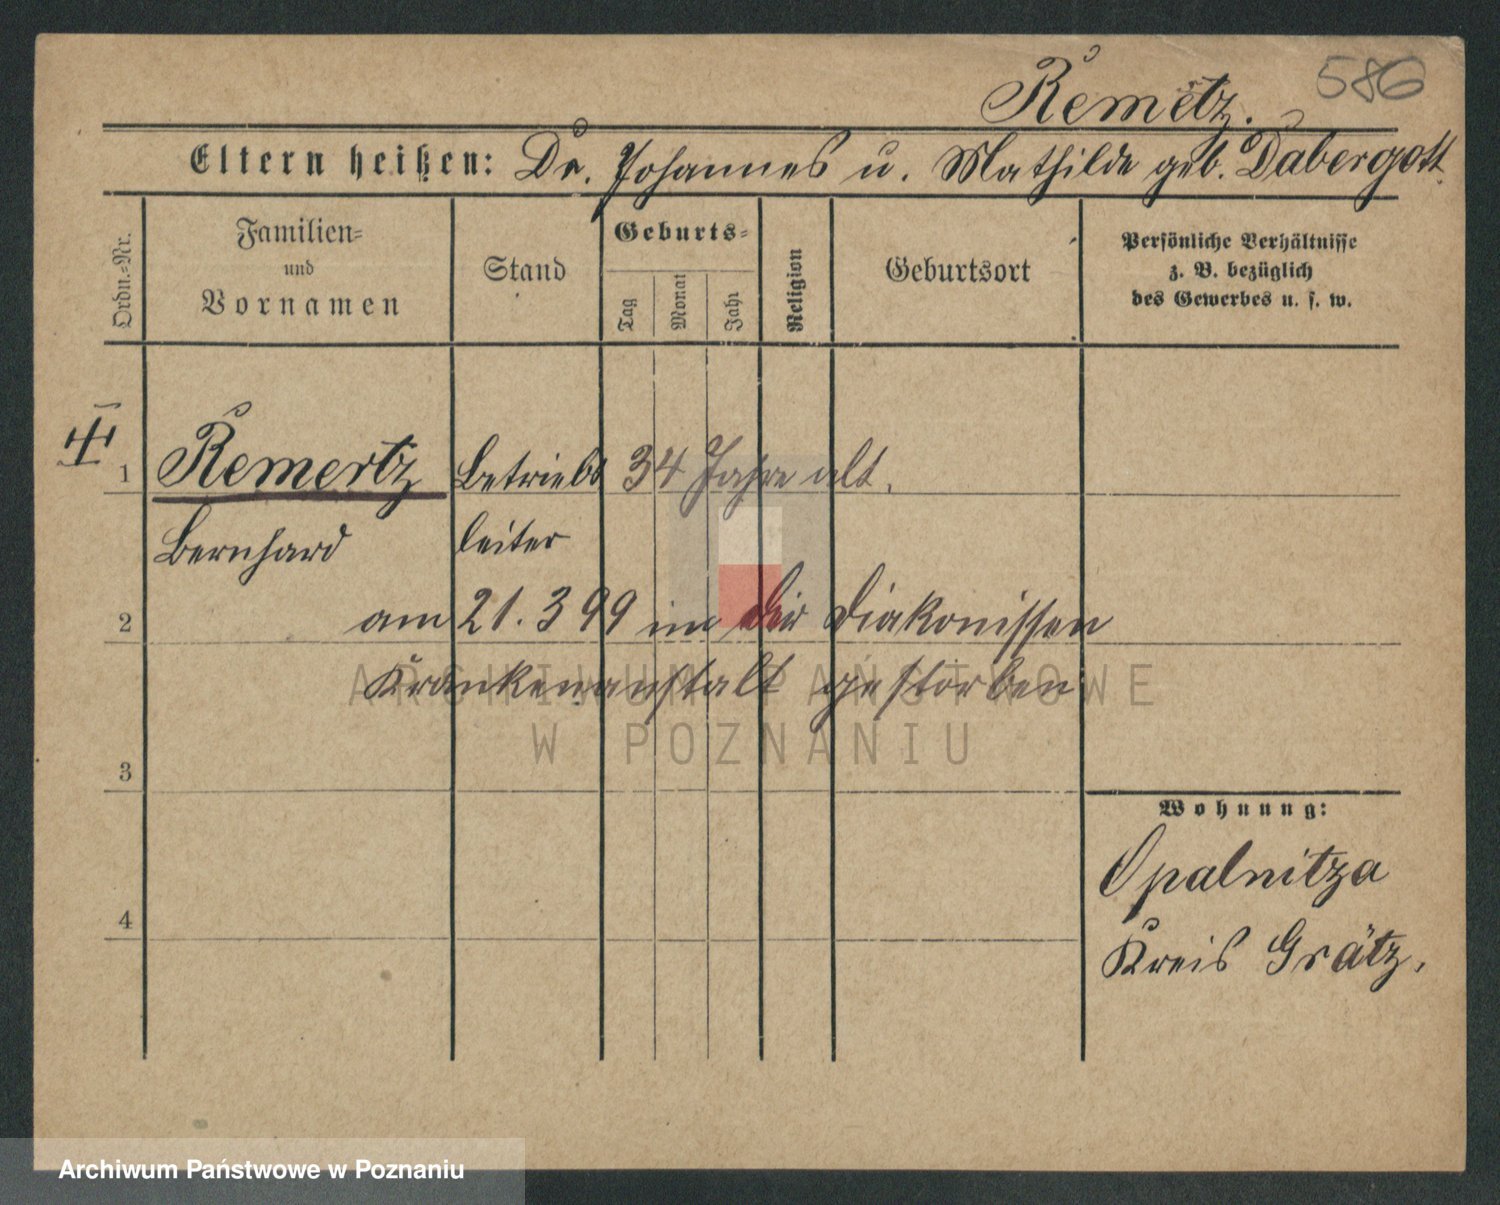 586
Remetz.
Eltern heißen: Dr. Johannes u. Mathilde geb. Dabergott
Ordn.-Nr.
Familien-
und
Vornamen
Stand
Geburts-
Tag
Monat
Jahr
Religion
Geburtsort
Persönliche Verhältnisse
z. B. bezüglich
des Gewerbes u. s. w.
1 Remertz Betriebs 34 Jahre alt.
Bernhard leiter
2 am 21.3 99 in der Diakonissen
Krankenanstalt gestorben
ARCHIWUM PAŃSTWOWE
W POZNANIU
3
Wohnung:
Opalnitza
4
Kreis Grätz.
Archiwum Państwowe w Poznaniu